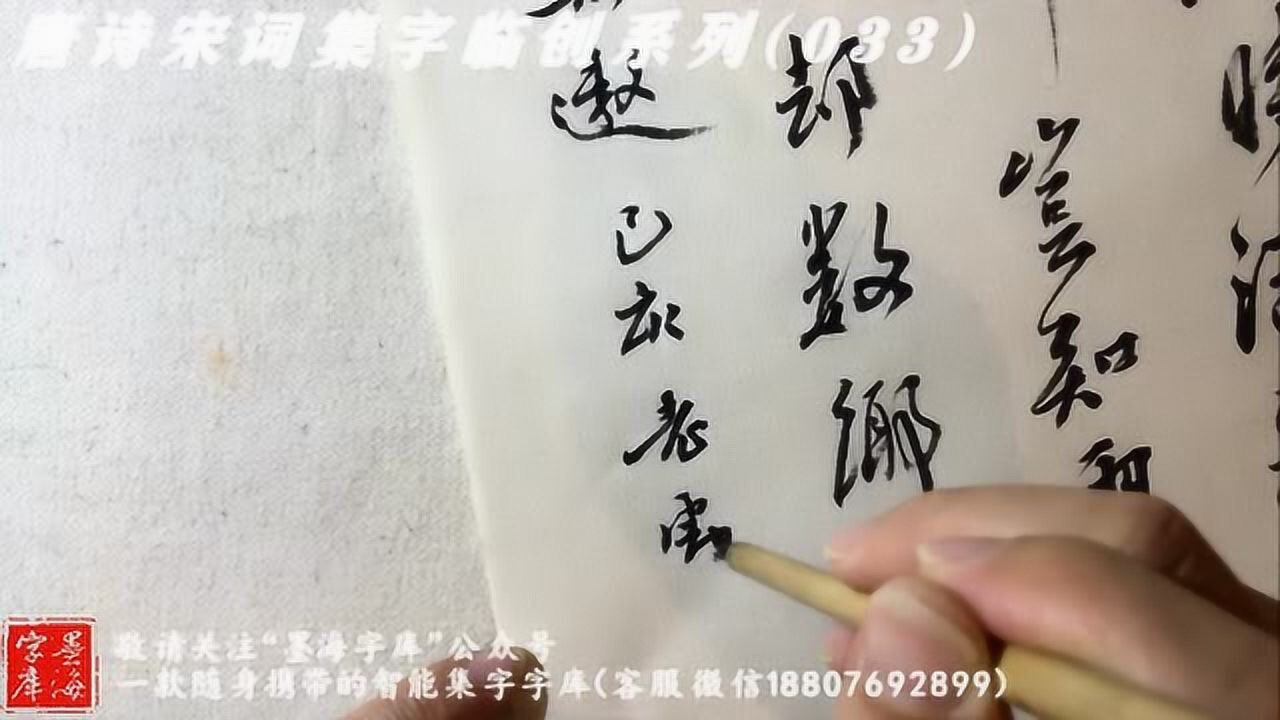 唐诗宋词集字临创系列(033)
晓
岂知
却数乡
邀
己亥老
墨海字库
敬请关注“墨海字库”公众号
一款随身携带的智能集字字库(客服微信18807692899)